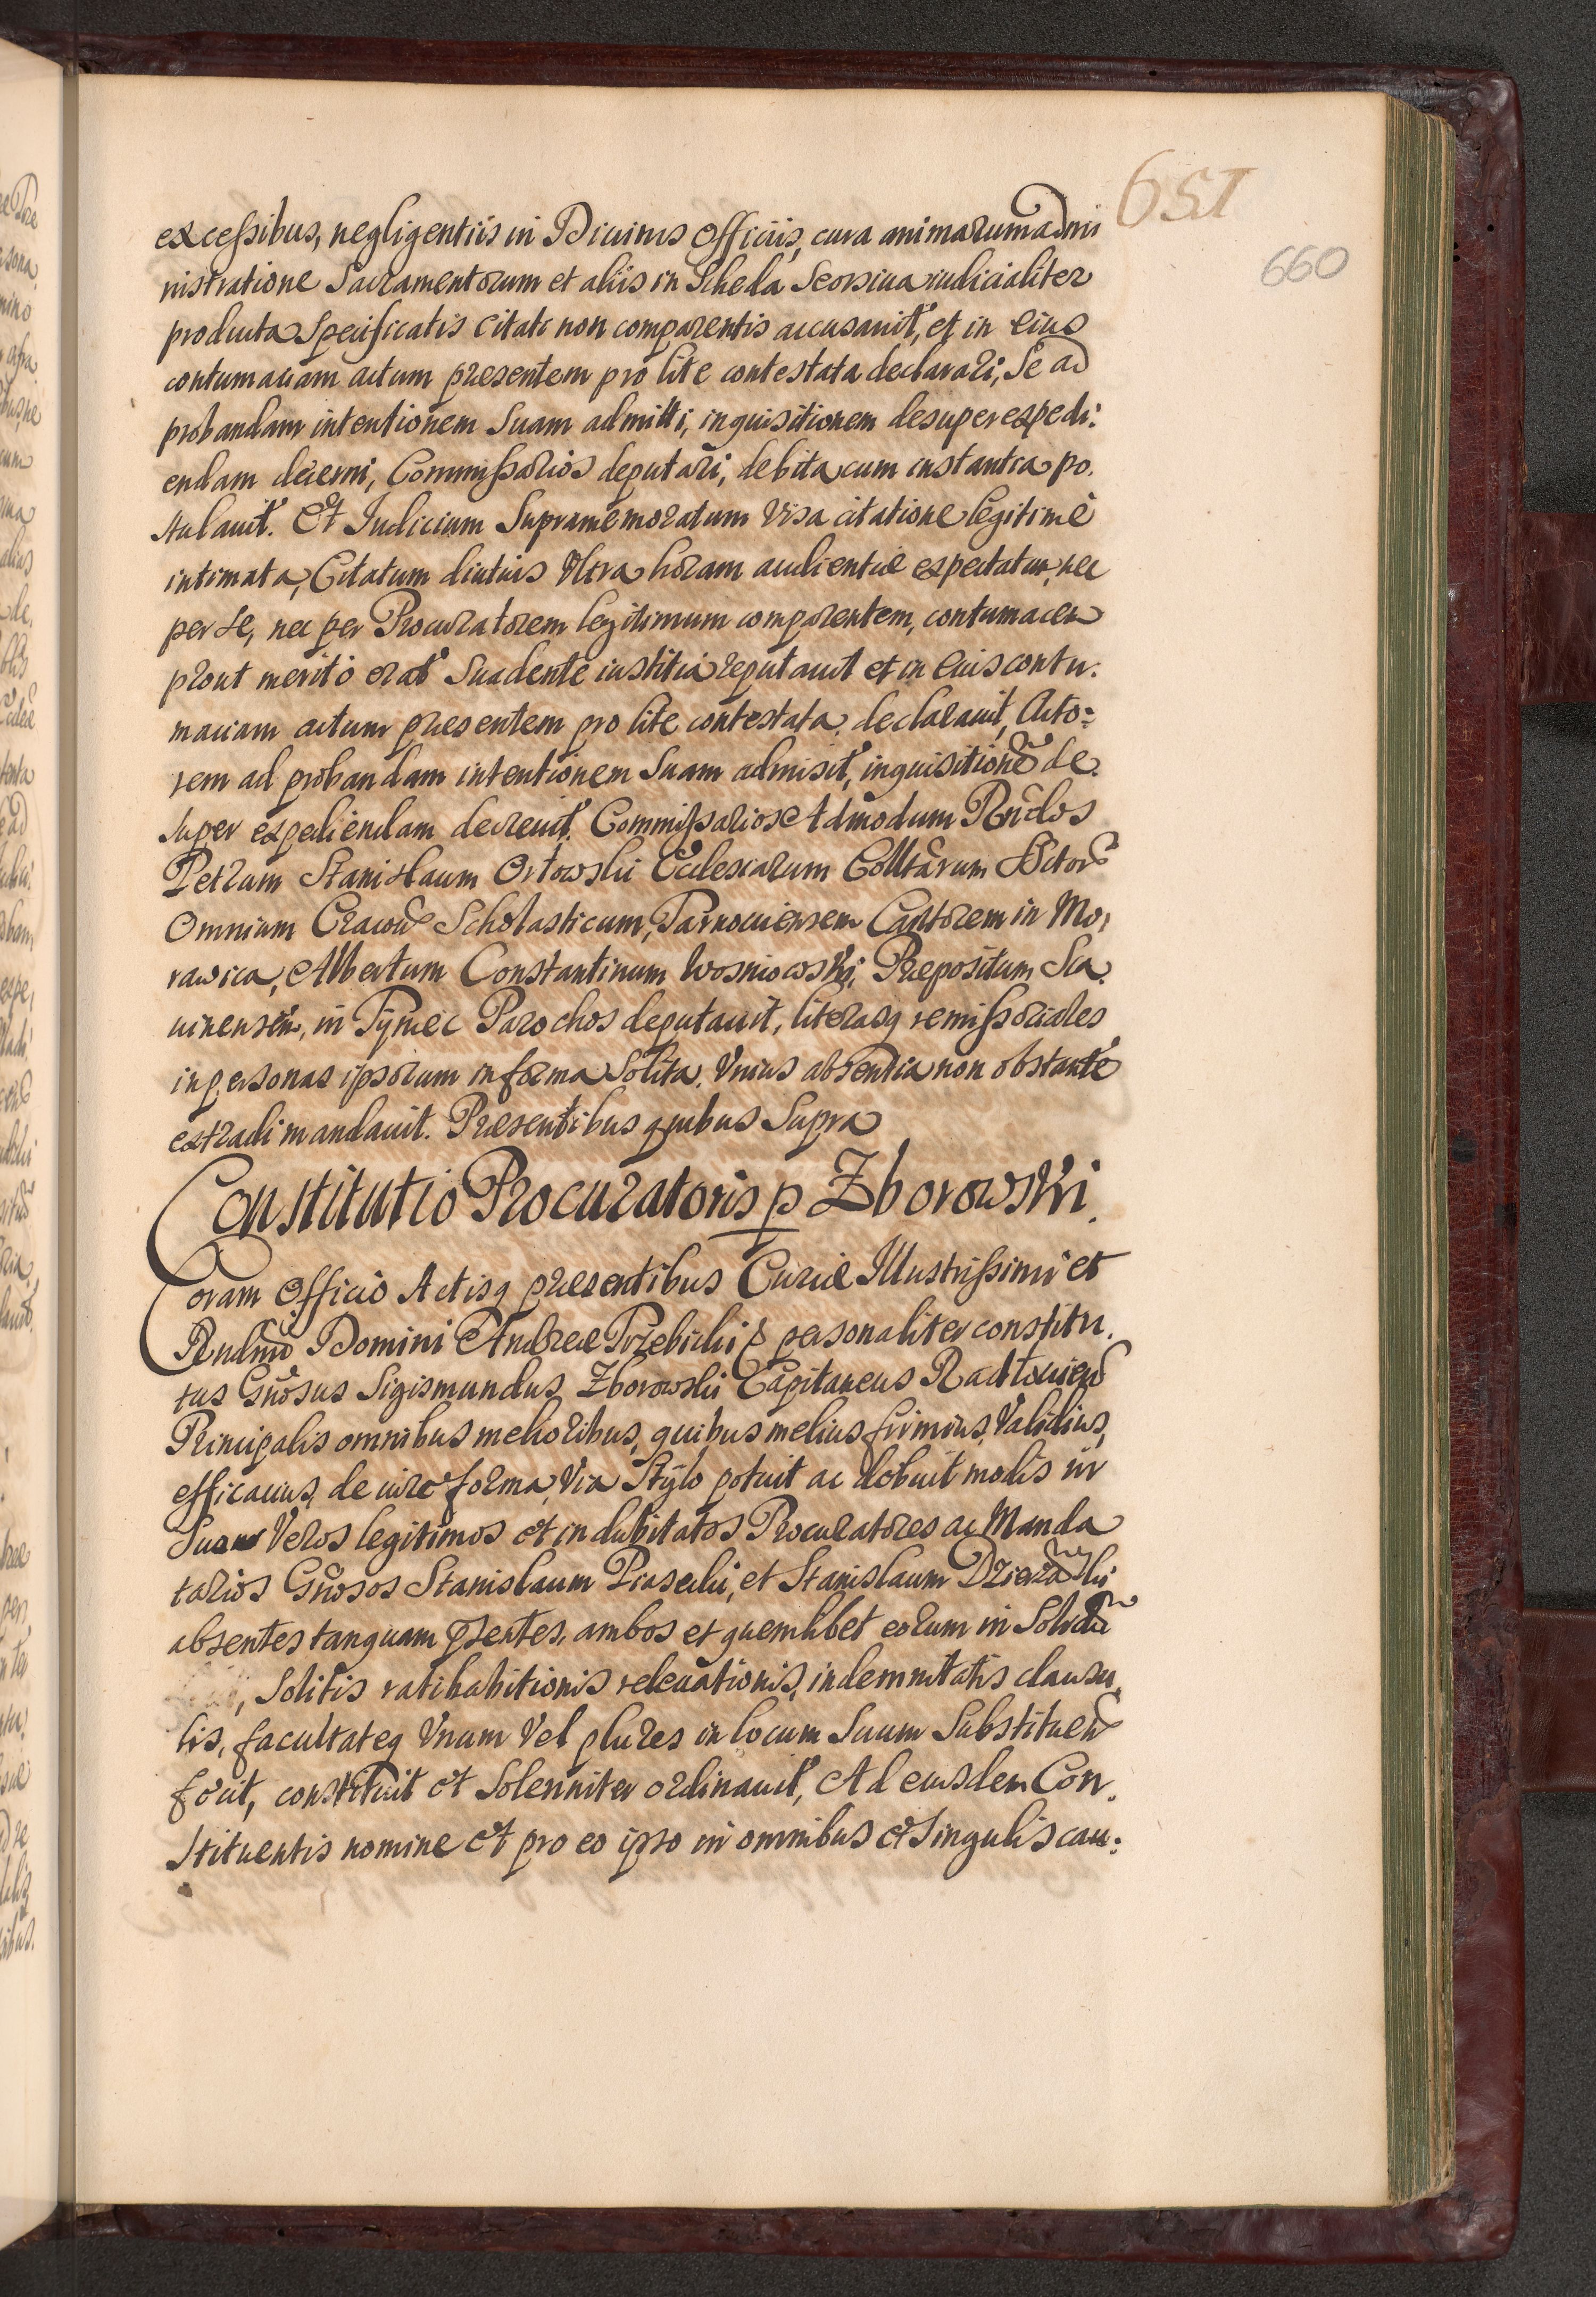 651
660
excessibus, negligentiis in Diuinis Officiis, cura animarum admi
nistratione Sacramentorum et aliis in Scheda Seorsiua iudicialiter
producta Specificatis citati non comparentis accusauit, et in eius
contumaciam actum presentem pro lite contestata declarari, Se ad
probandam intentionem Suam admitti, inquisitionem desuper expedi:
endam decerni, Commissarios deputari, debita cum instantia po.
stulauit. Et Iudicium Supramemoratum Visa citatione legitimè
intimata, Citatum diutius Vltra horam audientiæ expectatum, nec
per se, nec per Procuratorem legitimum comparentem, contumacem
prout meritò erat Suadente iustitia reputauit et in Eius contu.
maciam actum præsentem pro lite contestata declarauit, Acto:
rem ad probandam intentionem Suam admisit, inquisitionē de
super expediendam decreuit. Commissarios Admodum Rñdos
Petrum Stanislaum Orłowski Ecclesiarum Colltãrum SSctorũ
Omnium Cracouē Scholasticum, Tarnouiensem Cantorem in Mo,
rawica, Albertum Constantinum Wosniowski, Præpositum Sca
uinensēm, in Tyniec Parochos deputauit, literasq remissoriales
in personas ipsorum in forma Solita, Vnius absentia non obstante
extradi mandauit. Præsentibus quibus Supra
Constitutio Procuratoris p Zborowski.
Coram Officio Actisq præsentibus Curiæ Illustrissimi et
Rndmi Domini Andreæ Trzebicki & personaliter constitu.
tus Gñosus Sigismundus Zborowski Capitaneus Radłouien
Principalis omnibus melioribus, quibus melius firmius, Validius,
efficacius, de iure forma, Via Stylo potuit ac debuit modis in
Suos Veros legitimos et indubitatos Procuratores ac Manda
tarios Gñosos Stanislaum Piasecki, et Stanislaum
absentes tanquam p̃sentes, ambos et quemlibet eorum in Solidū
, Solitis ratihabitionis releuationis, indemnitatis clausu,
lis, facultateq Vnum Vel plures in locum Suum Substituen
fecit, constituit et Solenniter ordinauit, Ad eiusdem Con.
stituentis nomine et pro eo ipso in omnibus et Singulis cau: